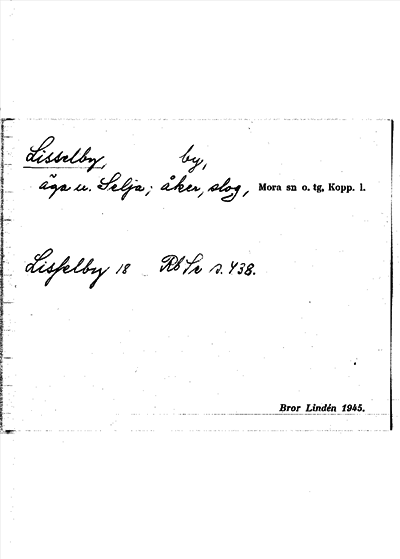 Lisselby, by,
äga u. Selja; åker, slog, Mora sn o. tg, Kopp. l.
Lisselby 18 Rb Sr s. 438.
Bror Lindén 1945.